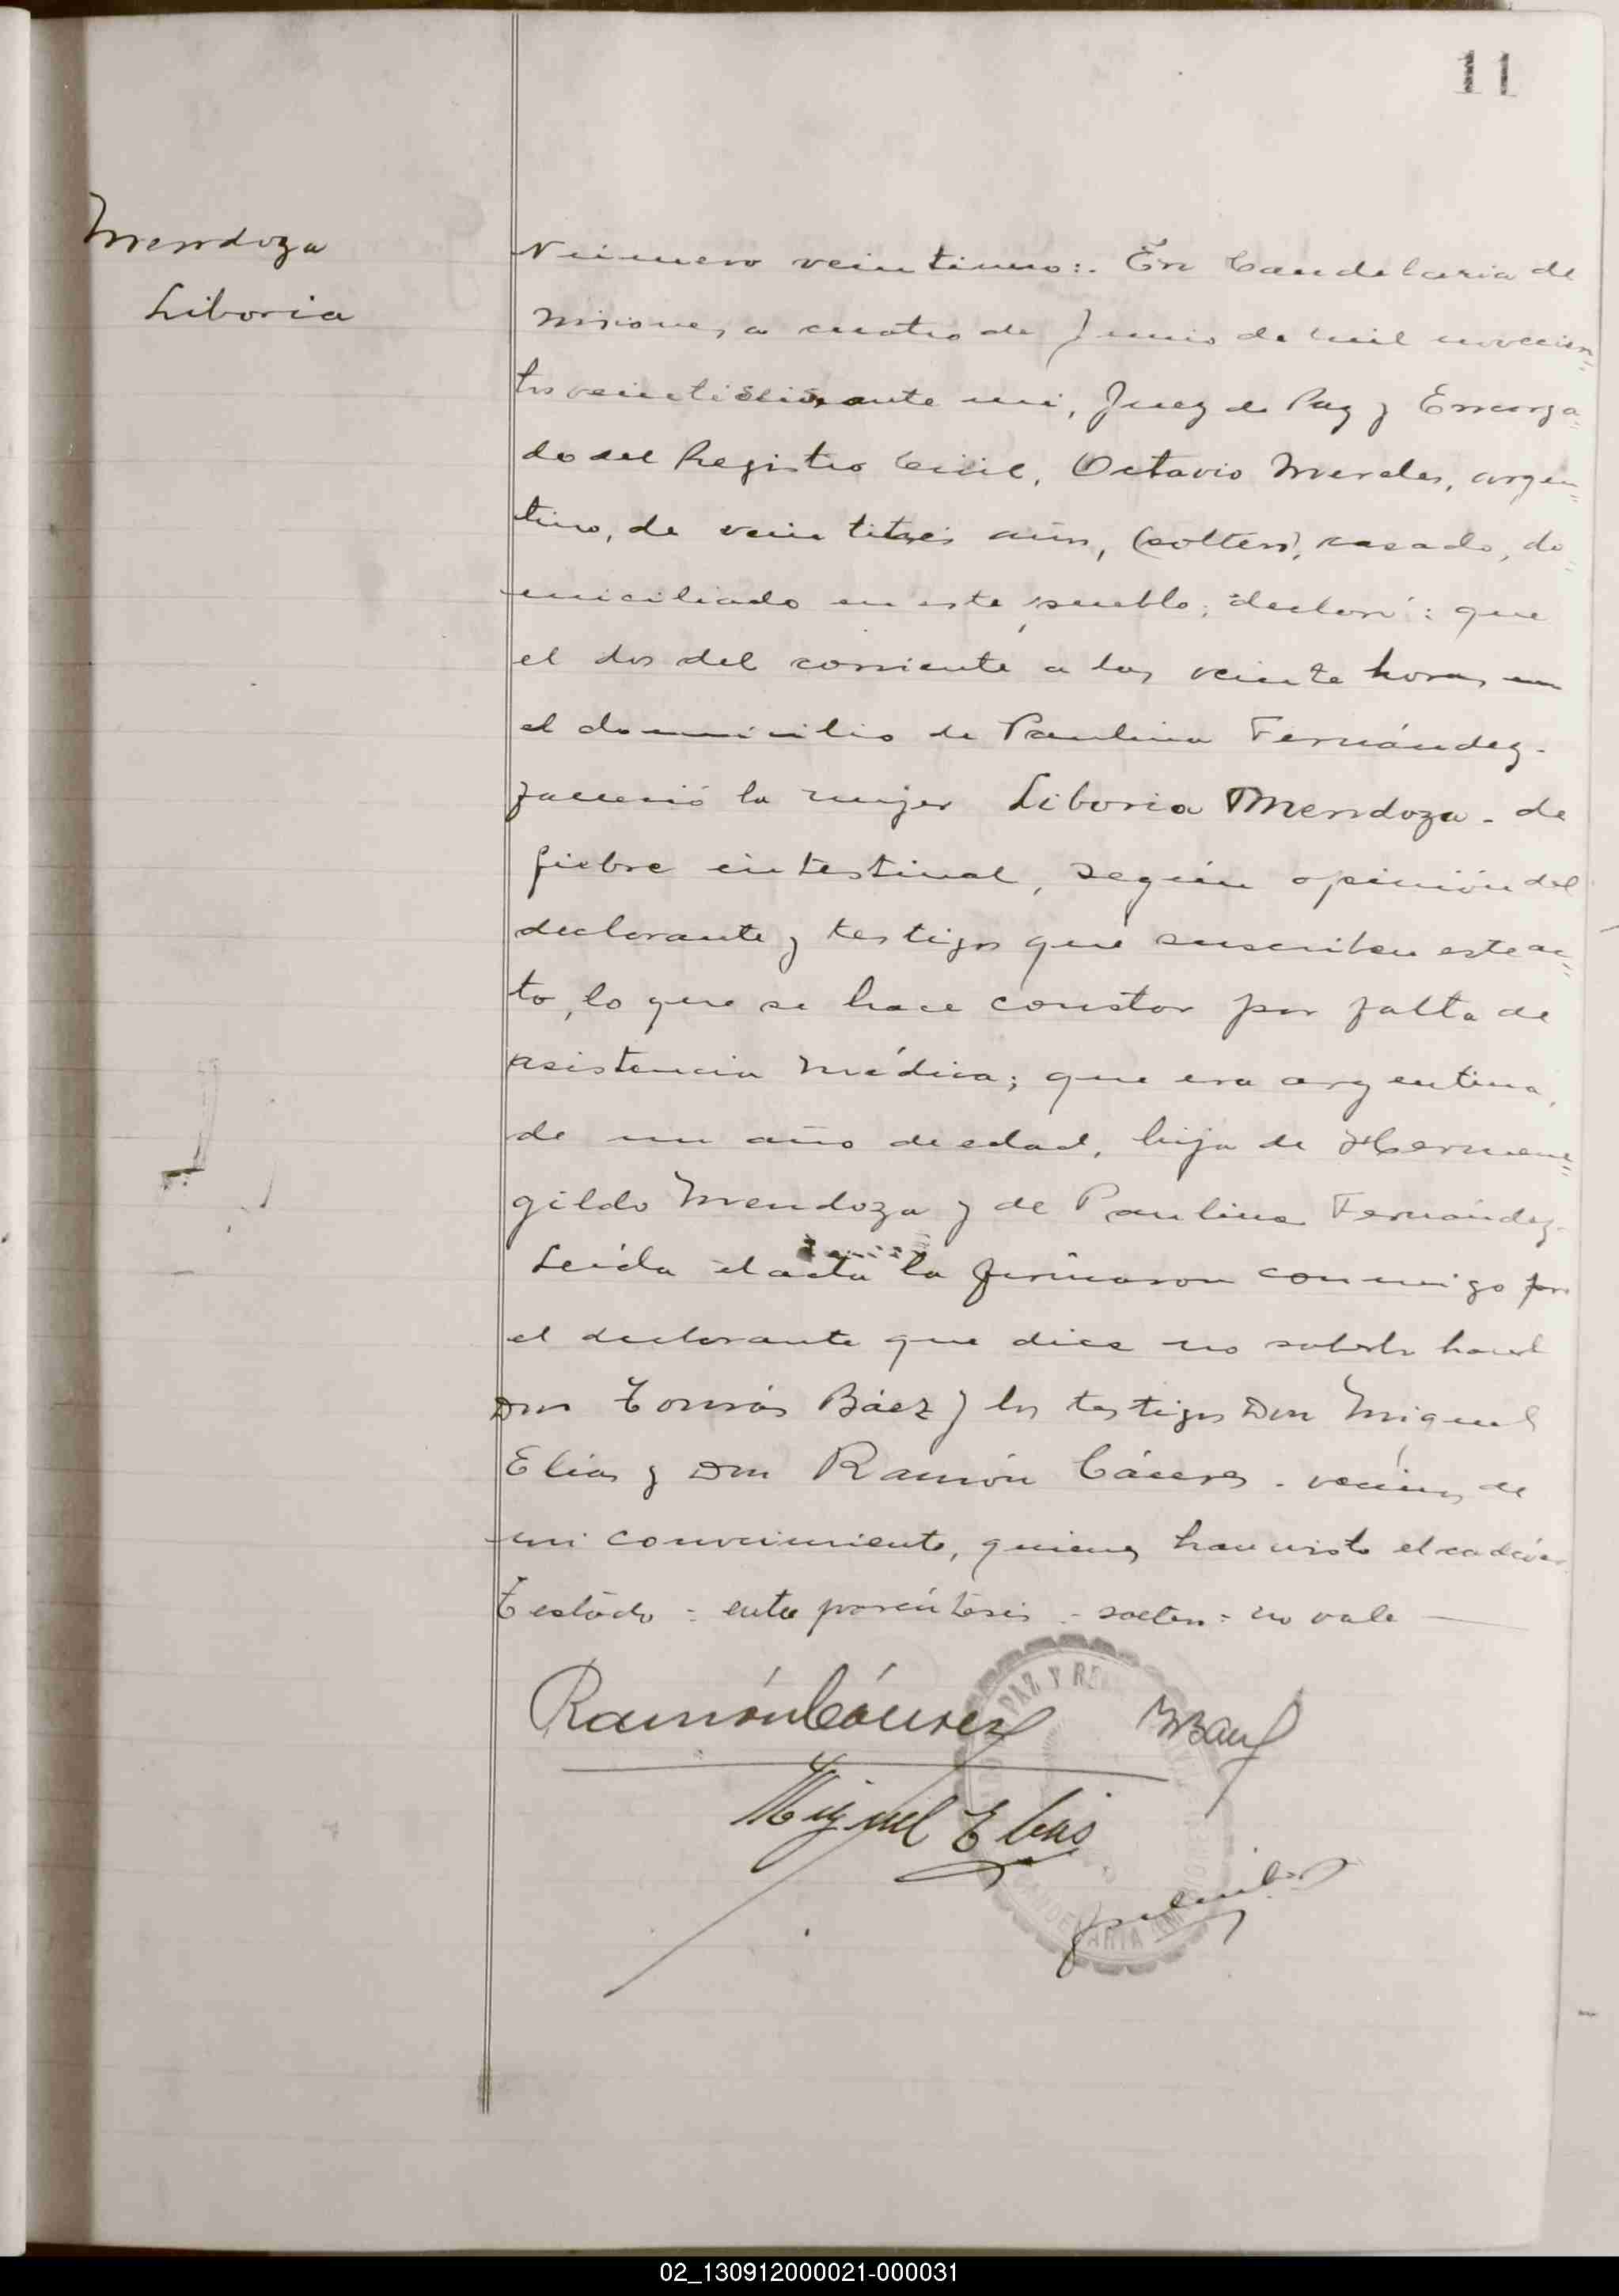 11
Mendoza
Liboria
Número veintiuno:. En Candelaria de
Misiones, a cuatro de Junio de mil novecien=
tos veintiséis, ante mi, Juez de Paz y Encarga=
do del Registro Civil, Octavio Mereles, argen=
tino, de veintitrés años, (soltero), casado, do=
miciliado en este pueblo, declaró: que
el dos del corriente a las veinte horas en
el domicilio de Paulina Fernández.
falleció la mujer Liboria Mendoza. de
fiebre intestinal, según opinión del
declarante y testigos que suscriben este ac=
to, lo que se hace constar por falta de
asistencia médica; que era argentina,
de un año de edad, hija de Hermene=
gildo Mendoza y de Paulina Fernández.
Leída el acta la firmaron conmigo por
el declarante que dice no saberlo hacer
Don Tomás Báez y los testigos Don Miguel
Elias y Don Ramón Cáceres. vecinos de
mi conocimiento, quienes han visto el cadáver
Testado = entre paréntesis - soltero = no vale
Ramón Cáceres
TBaez
Miguel Elias
PAZ Y RE
CANDELARIA
02_130912000021-000031